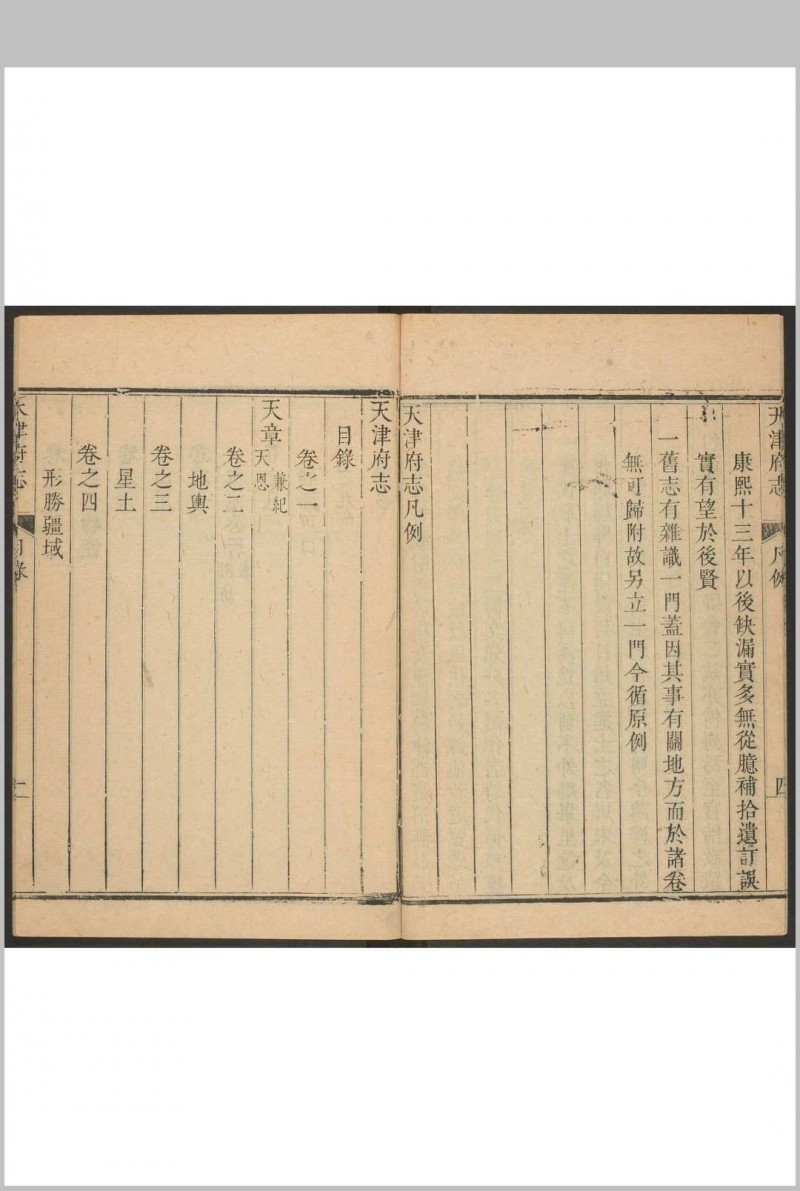 天津府志
凡例
四
康熙十三年以後缺漏實多無從臆補拾遺訂誤
實有望於後賢
一舊志有雜識一門蓋因其事有關地方而於諸卷
無可歸附故另立一門今循原例
天津府志凡例
天津府志
目錄
卷之一
天章兼紀天恩
卷之二
地輿
卷之三
星土
卷之四
形勝疆域
天津府志
目錄
一